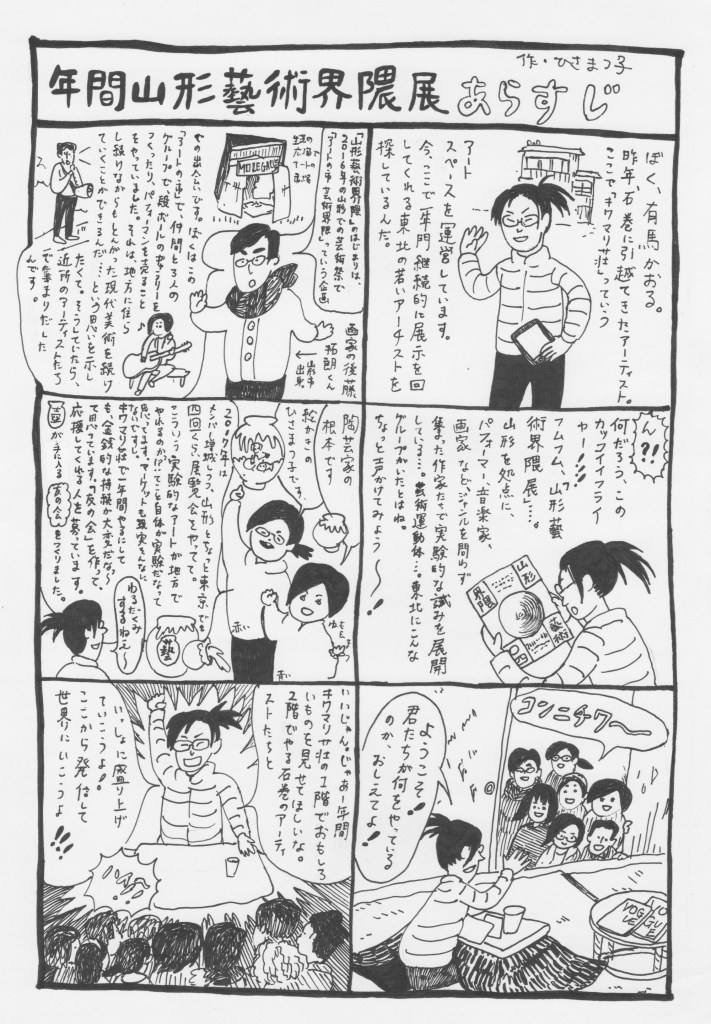 作・ひさまつ子
年間山形藝術界隈展 あらすじ
ぼく、有馬かおる。
昨年、石巻に引越してきたアーティスト。
ここで、「キワマリ荘」っていう
アート
スペースを運営しています。
今、ここで一年間 継続的に展示を
してくれる東北の若いアーチストを
探しているんだ。
ん?!
何だろう、この
カッコイイフライ
ヤー!
フムフム、「山形藝
術界隈展」…。
山形を拠点に、
パフォーマー、音楽家
画家 などジャンルを問わず
集まった作家たちで実験的な試みを展開
している…。芸術運動体…。東北にこんな
グループがいたとはね。
ちょっと声かけてみよう〜〜
山形
藝術
界隈
コンニチワ〜〜
ようこそ!
君たちが何をやっている
のか、おしえてよ!
VOGUE
VOGUE
「山形藝術界隈」のはじまりは、
2016年の山形での芸術祭で
「アートの市 芸術界隈」っていう企画
での出会いです。ぼくはこの
「アートの市」で、仲間と3人の
グループで、段ボールのギャラリーを
つくったり、パフォーマンスを売ること
をやっていました。それは、地方に住ら
し続けながらもとんがった現代美術を続け
ていくことができるんだ…という思いを示し
たくて。そうしていたら、
近所のアーティストたち
で集まりだした
んです。
MOLE GALLE
画家の後藤
拓朗くん
出身
陶芸家の
根本です
絵かきの
ひさまつ子です。
2017年は
メンバー増城しつつ、山形とちょっと東京でも
四回くらい展覧会をやって。
こういう実験的なアートが地方で
やれるのか!?…てこと自体が実験だなって
思ってます。マーケットも現実もなんに
ないですし。
キワマリ荘で一年間やるにして
も、金銭的な持続が大変だな〜
て思っています。「友の会」を作って
応援してくれる人を募っています。
壺が手に入る 友の会 をつくりました。
赤い
赤い
藝
わるだくみ
するねえ〜
いいじゃん。じゃあ一年間
キワマリ荘の1階でおもしろ
いものを見せてほしいな。
2階でやる石巻のアーティ
ストたちと
いっしょに盛り上げ
ていこうよ!
ここから発信して
世界にいこうよ
!!